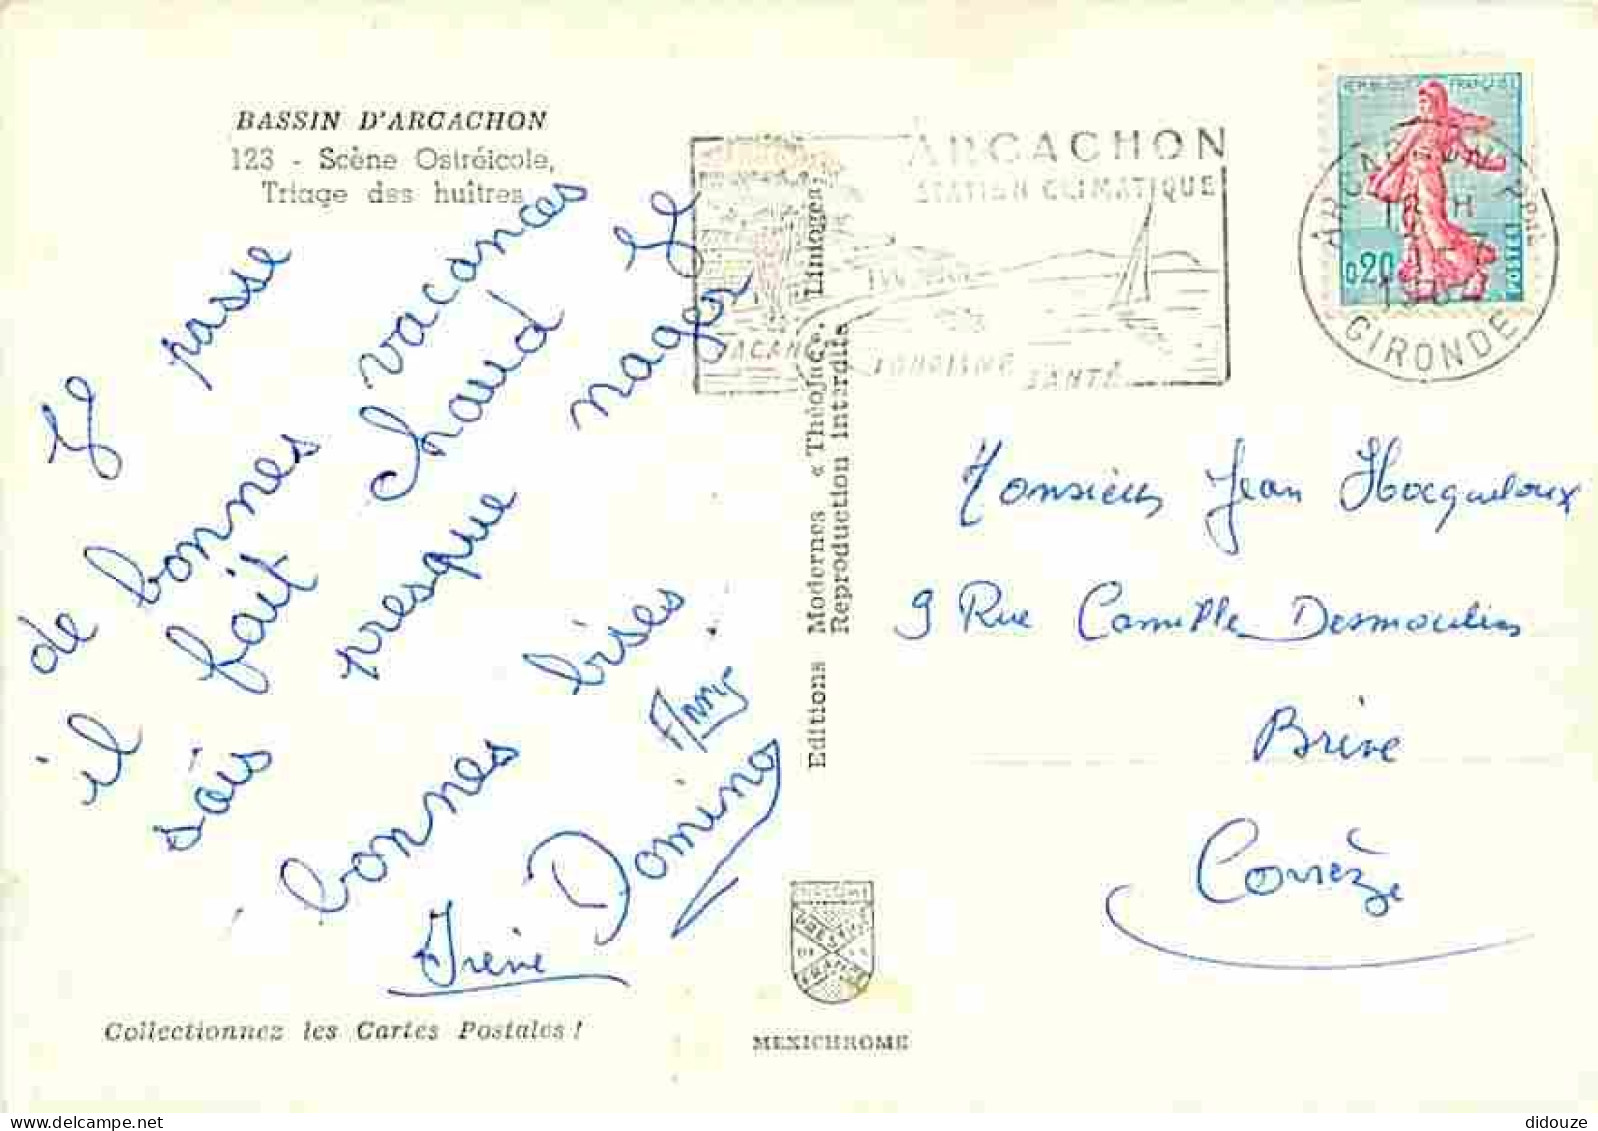 BASSIN D'ARCACHON
123 - Scène Ostréicole,
Triage des huîtres
Je passe
de bonnes vacances
il fait chaud Je
sais presque nager
bonnes bises
Anny
Domino
Irène
Collectionnez les Cartes Postales !
Editions Modernes « Théojac », Limoges,
Reproduction interdite
MEXICHROME
ARCACHON
STATION CLIMATIQUE
VACANCES TOURISME SANTÉ
REPUBLIQUE FRANÇAISE
0,20
POSTES
ARCACHON
GIRONDE
Monsieur Jean Hocqueloux
9 Rue Camille Desmoulins
Brive
Corrèze
didouze